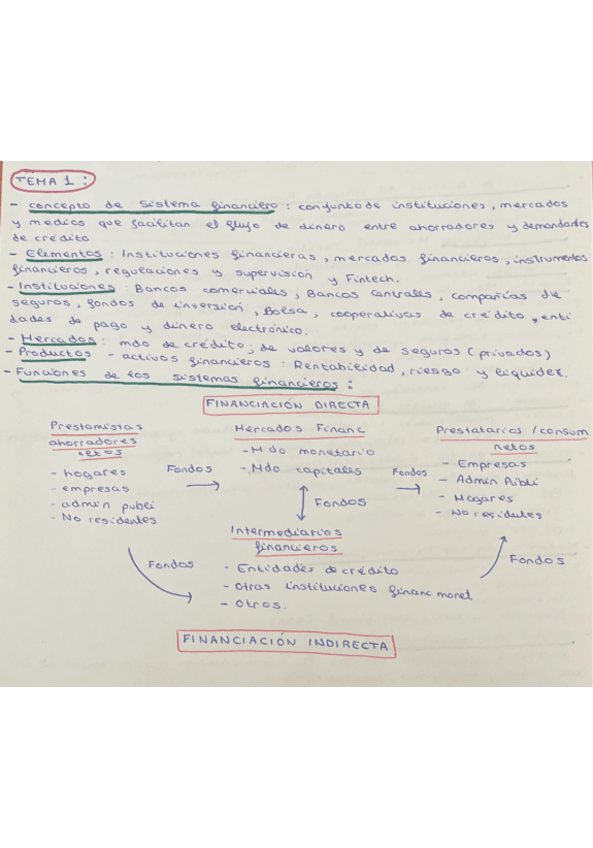 TEMA 1:
- concepto de sistema financiero: conjunto de instituciones, mercados
y medios que facilitan el flujo de dinero entre ahorradores y demandantes
de crédito
- Elementos: Instituciones financieras, mercados financieros, instrumentos
financieros, regulaciones y supervisión y Fintech.
- Instituciones: Bancos comerciales, Bancos Centrales, compañías de
seguros, fondos de inversión, Bolsa, cooperativas de crédito, enti
dades de pago y dinero electrónico.
- Mercados: mdo de crédito; de valores y de seguros (privados)
- Productos - activos financieros: Rentabilidad, riesgo y liquidez.
- Funciones de los sistemas financieros:
FINANCIACIÓN DIRECTA
Prestamistas
ahorradores
netos
- hogares
- empresas
- admin publi
- No residentes
Fondos
Mercados Financ
- Mdo monetario
- Mdo capitales
Fondos
Prestatarios / consum
netos
- Empresas
- Admin Publi
- Hogares
- No residentes
Fondos
Intermediarios
financieros
- Entidades de crédito
- Otras instituciones financ monet
- Otros.
Fondos
Fondos
FINANCIACIÓN INDIRECTA